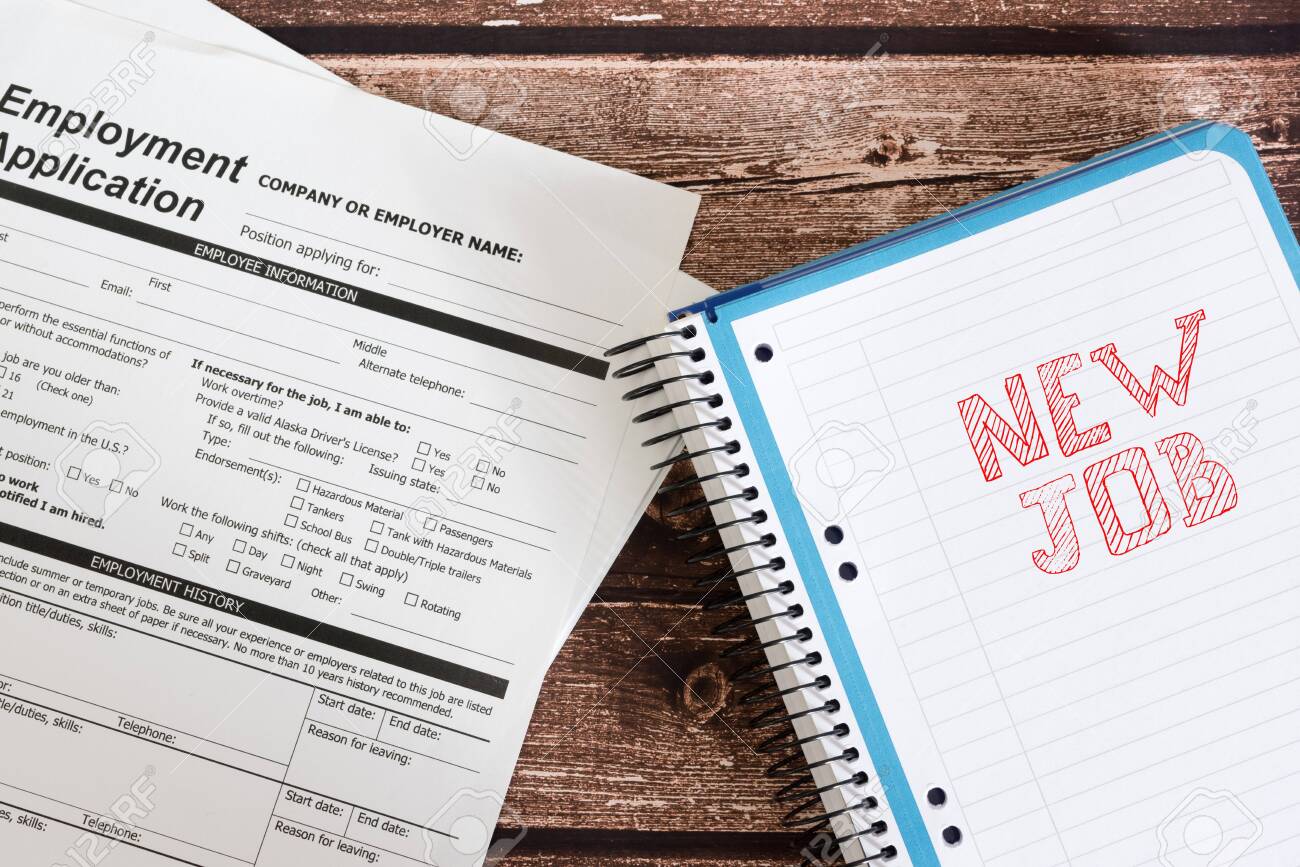 Employment
Application
COMPANY OR EMPLOYER NAME:
Position applying for:
EMPLOYEE INFORMATION
First
Middle
Email:
Alternate telephone:
perform the essential functions of
or without accommodations?
job are you older than:
16 (Check one)
21
employment in the U.S.?
position: Yes No
work
notified I am hired.
If necessary for the job, I am able to:
Work overtime? Yes No
Provide a valid Alaska Driver's License? Yes No
If so, fill out the following:
Type: Issuing state:
Endorsement(s):
Hazardous Material Passengers
Tankers Tank with Hazardous Materials
School Bus Double/Triple trailers
Work the following shifts: (check all that apply)
Any Day Night Swing Rotating
Split Graveyard Other:
EMPLOYMENT HISTORY
include summer or temporary jobs. Be sure all your experience or employers related to this job are listed
or on an extra sheet of paper if necessary. No more than 10 years history recommended.
title/duties, skills:
Start date: End date:
Telephone:
Reason for leaving:
title/duties, skills:
Start date: End date:
Telephone:
Reason for leaving:
skills:
NEW
JOB
123RF